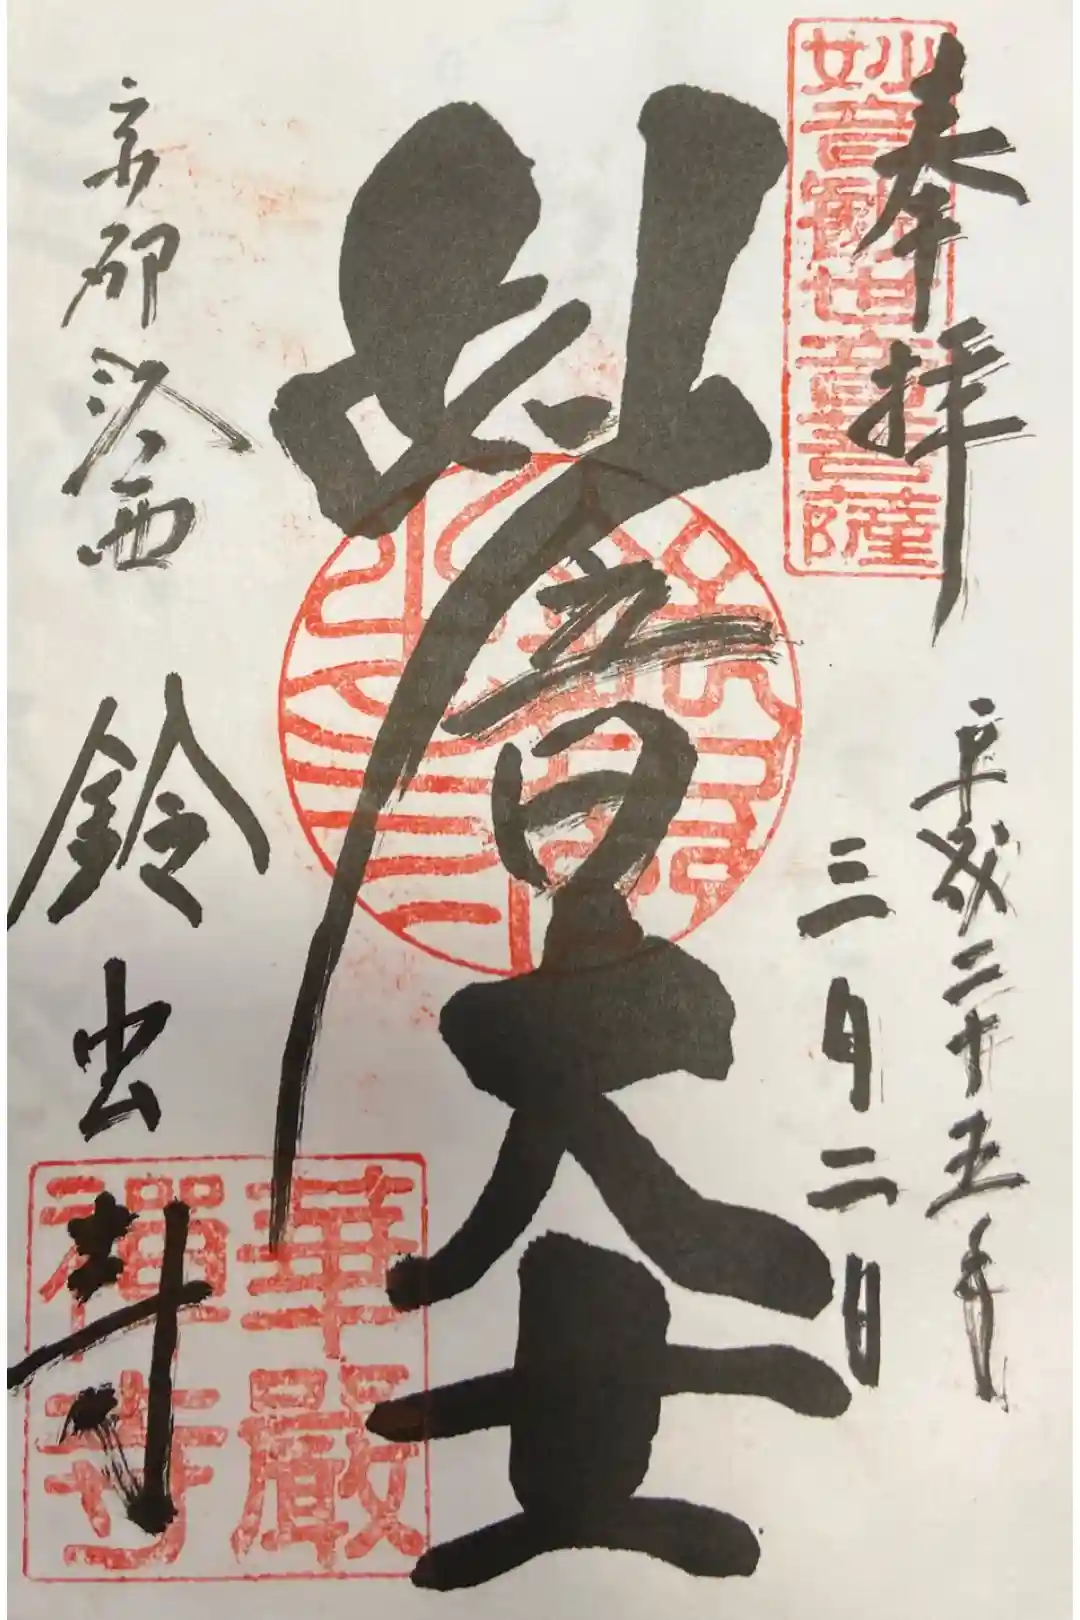 妙音觀世音菩薩
奉拝
平成二十五年
三月二日
妙音大士
京都洛西 鈴虫寺
華嚴
禪寺